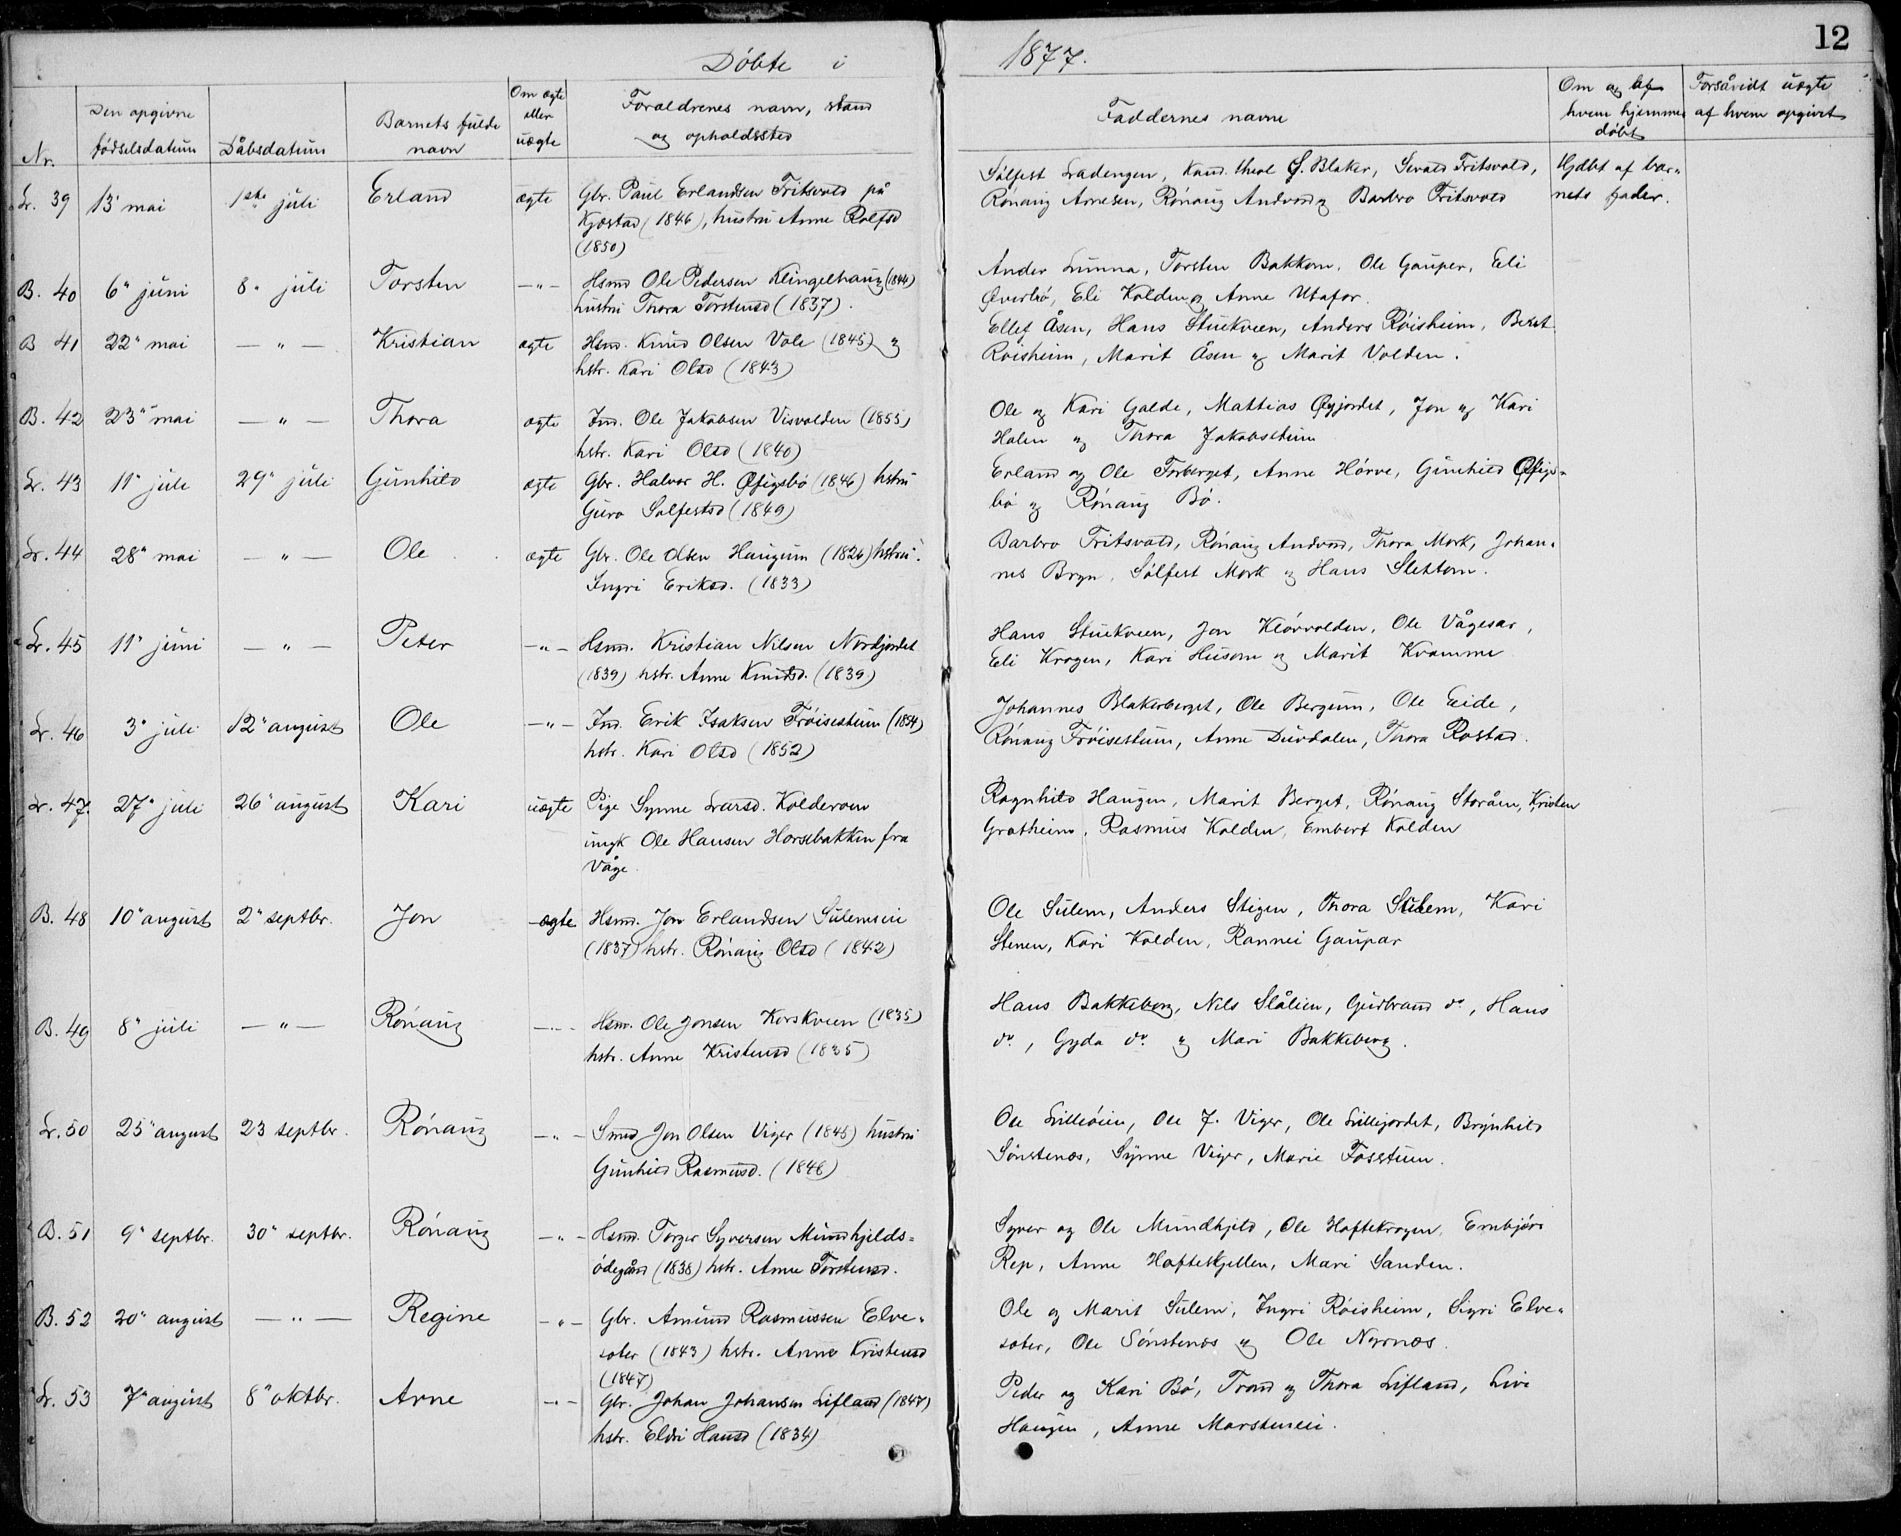 12
Døbte i 1877.
Nr.
Den opgivne fødselsdatum
Dåbsdatum
Barnets fulde navn
Om ægte eller uægte
Forældrenes navn, stand og opholdssted
Faddernes navne
Om og af hvem hjemmedøbt
Forsåvidt uægte af hvem opgivet
Lr. 39 13' mai 1ste juli Erland ægte Gbr. Paul Erlandsen Fritsvold på
Kjæstad (1846), hustru Anne Rolfsd
(1850)
Sålfest Ladengen, Kand. theol Ø. Blaker, Sevald Fritsvold,
Rønaug Arnesen, Rønaug Andvord og Barbro Fritsvold
Hjdbt af bar-
nets fader.
B. 40 6" juni 8" juli Torsten — " — Hsmd Ole Pedersen Klingelhaug (1844)
hustru Thora Torstensd (1837).
Anders Lunna, Torsten Bakkom, Ole Gauper, Eli
Øverbø, Eli Kolden og Anne Utafor.
B 41 22" mai — " — Kristian ægte Hsmd. Knud Olsen Vole (1845) og
hstr. Kari Olsd (1843)
Ellef Åsen, Hans Stuekveen, Anders Røisheim, Beret
Røisheim, Marit Åsen og Marit Volden.
B. 42 23" mai — " — Thora ægte Ind. Ole Jakobsen Visvolden (1855)
hstr. Kari Olsd (1840)
Ole og Kari Galde, Mattias Øygjordet, Jon og Kari
Holen og Thora Jakobstuen
Lr. 43 11" juli 29" juli Gunhild ægte Gbr. Halvor H. Øfigsbø (1846) hstru
Guro Solfestsd (1849)
Erland og Ole Forberget, Anne Hørve, Gunhild Øfigs-
bø og Rønaug Bø.
Lr. 44 28" mai — " — Ole ægte Gbr. Ole Olsen Haugum (1826) hstru
Ingri Eriksd. (1833)
Barbro Fritsvold, Rønaug Andvord, Thora Mork, Johan-
nes Bryn, Sålfest Mork og Hans Slettom.
Lr. 45 11" juni — " — Peter — " — Hsmd. Kristian Nilsen Nordjordet
(1839) hstr. Anne Knudsd. (1839)
Hans Stuekveen, Jon Kløvvolden, Ole Vågesar,
Eli Krogen, Kari Husom og Marit Kvamme
Lr. 46 3" juli 12" august Ole — " — Ind. Erik Isaksen Frøisestuen (1854)
hstr. Kari Olsd (1852)
Johannes Blakerberget, Ole Bergum, Ole Eide,
Rønaug Frøisestuen, Anne Duvdalen, Thora Rostad.
Lr. 47. 27" juli 26" august Kari uægte Pige Synne Larsd. Kolderven
ungk Ole Hansen Horsebakken fra
Våge
Ragnhild Haugen, Marit Berget, Rønaug Storåen, Kristen
Gratheim, Rasmus Kolden, Embert Kolden
B. 48 10" august 2" septbr. Jon ægte Hsmd. Jon Erlandsen Sulemseie
(1837) hstr. Rønaug Olsd (1842)
Ole Sulem, Anders Steigen, Thora Sulem, Kari
Stenen, Kari Kolden, Rannei Gaupar
B. 49 8" juli — " — Rønaug — " — Hsm. Ole Jonsen Korskveen (1835)
hstr. Anne Kristensd (1835)
Hans Bakkeberg, Nils Slålien, Gudbrand do, Hans
do, Gyda do og Mari Bakkeberg.
Lr. 50 25" august 23 septbr. Rønaug — " — Smed Jon Olsen Viger (1845) hustru
Gunhild Rasmusd. (1848)
Ole Lilleøien, Ole J. Viger, Ole Lillejordet, Brynhild
Sønstenæs, Synne Viger, Marie Fosstuen.
B. 51 9" septbr. 30" septbr. Rønaug — " — Hsmd. Torger Syversen Mundhjelds-
ødegård (1838) hstr. Anne Torstensd.
Syver og Ole Mundhjeld, Ole Hoftekrogen, Embjørg
Rep, Anne Hoftekjellen, Mari Sanden.
B. 52 20" august — " — Regine — " — Gbr. Amund Rasmussen Elve-
sæter (1843) hstr. Anne Kristensd
(1847)
Ole og Marit Sulem, Ingri Røisheim, Sigri Elve-
sæter, Ole Sønstenæs og Ole Nyrnæs.
Lr. 53 7" august 8" oktbr. Arne — " — Gbr. Johan Johansen Lifland (1847)
hstr. Eldri Hansd (1834)
Peder og Kari Bø, Trond og Thora Lifland, Live
Haugen, Anne Marsteneie.